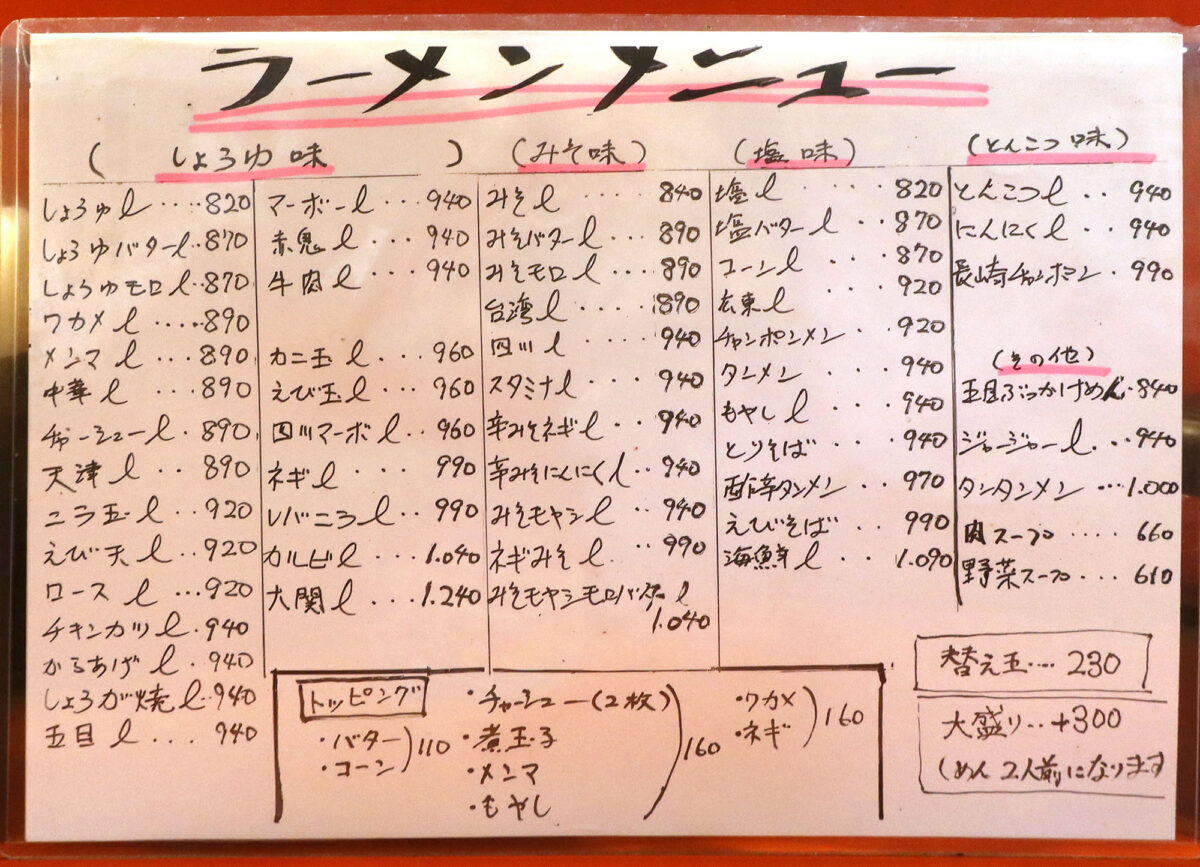 ラーメンメニュー
(しょうゆ味)
しょうゆl ････820
しょうゆバターl･･870
しょうゆモロl･･870
ワカメl ･････890
メンマl ･･･890
中華l ･･･890
チャーシューl･890
天津l ･･890
ニラ玉l ･･920
えび天l･･920
ロースl ･･･920
チキンカツl･940
からあげl･940
しょうが焼l･940
五目l ･･･940
マーボーl･･･940
赤鬼l･･･940
牛肉l ･･･940
カニ玉l･･･960
えび玉l･･･960
四川マーボl･･960
ネギl･･･990
レバニラl･･990
カルビl･･･1.040
大関l･･･1.240
(みそ味)
みそl ･･･840
みそバターl･･･890
みそモロl･･･890
台湾l･････890
四川l ････940
スタミナl･･･940
辛みそネギl･･940
辛みそにんにくl･･940
みそモヤシl･･940
ネギみそl･･990
みそモヤシモロバターl
1.040
(塩味)
塩l ････820
塩バターl･･870
コーンl･･･870
広東l ･･･920
チャンポンメン･･920
タンメン･･･940
もやしl･･･940
とりそば･･･940
酢辛タンメン･･970
えびそば･･･990
海鮮l･･･1.090
(とんこつ味)
とんこつl･･940
にんにくl･･940
長崎チャンポン･990
(その他)
五目ぶっかけめん･840
ジャージャーl･･940
タンタンメン･･･1.000
肉スープ････660
野菜スープ････610
トッピング
･バター
･コーン
)110
･チャーシュー(2枚)
･煮玉子
･メンマ
･もやし
)160
･ワカメ
･ネギ
)160
替え玉････230
大盛り･･+300
(めん2人前になります